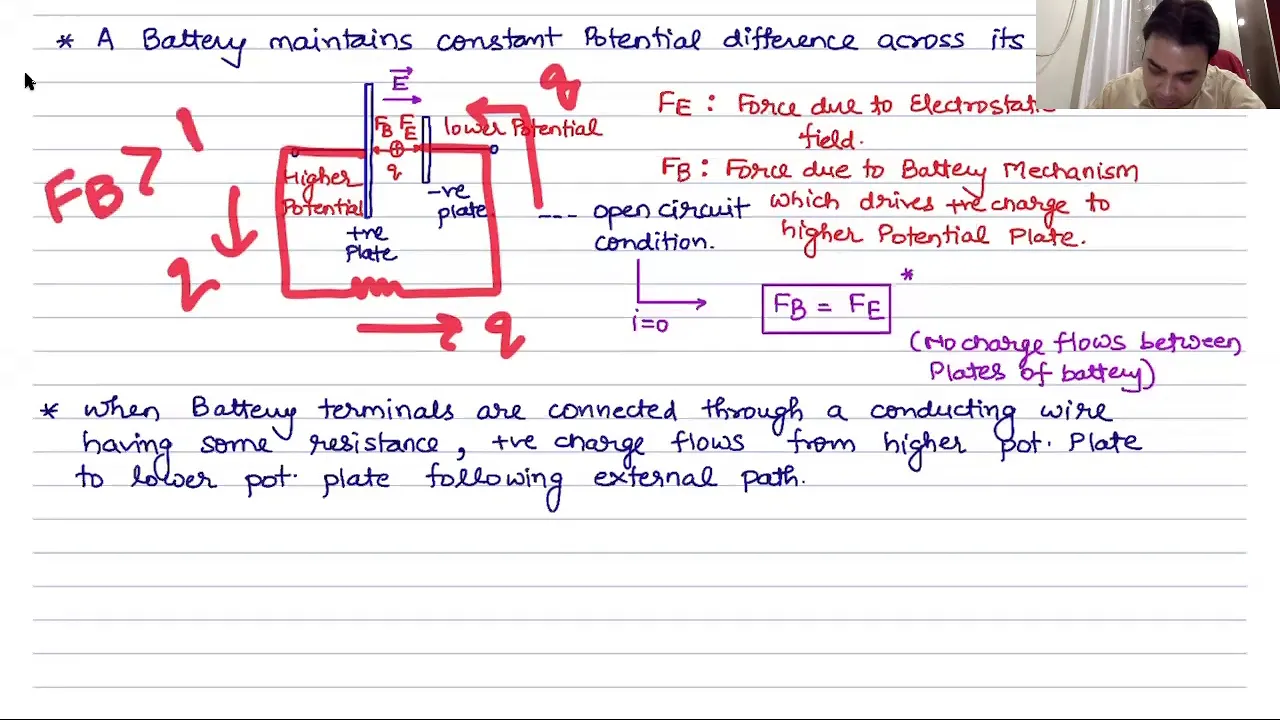 * A Battery maintains constant Potential difference across its
E
q
FB FE
lower Potential
q
Higher
Potential
-ve
plate
+ve
Plate
FB >
q
q
FE : Force due to Electrostatic
field.
FB : Force due to Battery Mechanism
which drives +ve charge to
higher Potential Plate.
--- open circuit
condition.
i=0
FB = FE
*
(No charge flows between
Plates of battery)
* when Battery terminals are connected through a conducting wire
having some resistance, +ve charge flows from higher pot. Plate
to lower pot. plate following external path.